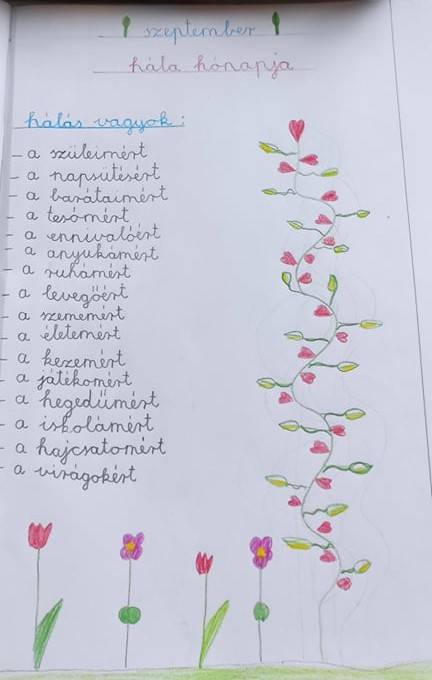 szeptember
hála hónapja
hálás vagyok:
- a szüleimért
- a napsütésért
- a barátaimért
- a tesómért
- a ennivalóért
- a anyukámért
- a ruhámért
- a levegőért
- a szememért
- a életemért
- a kezemért
- a játékomért
- a hegedűmért
- a iskolámért
- a hajcsatomért
- a virágokért